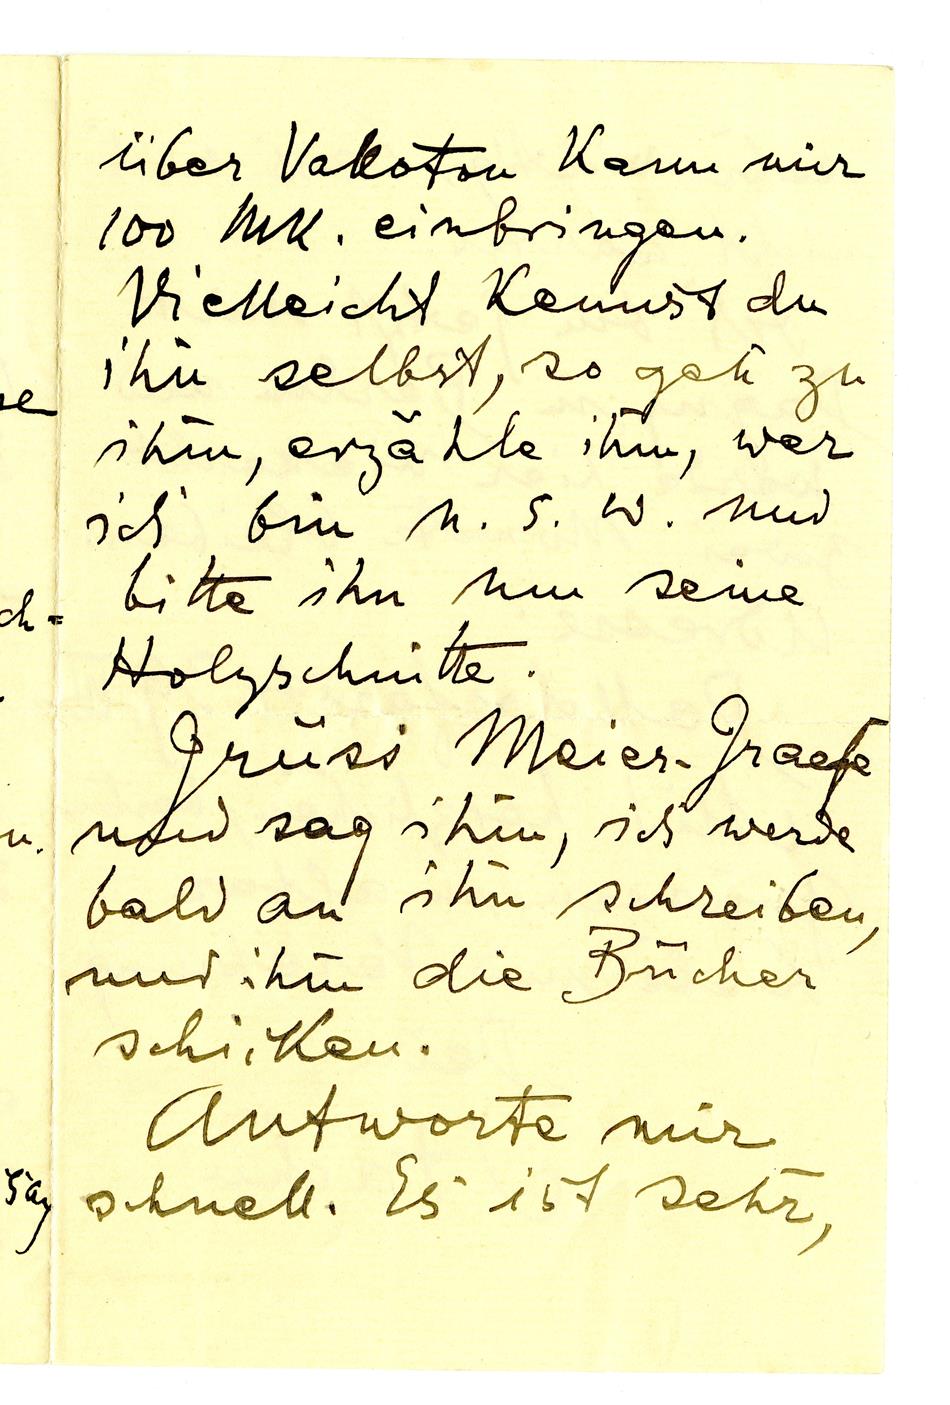 über Vakoton Kann mir
100 MK. einbringen.
Vielleicht Kennst du
ihn selbst, so geh zu
ihm, erzähle ihm, wer
ich bin u. s. w. und
bitte ihn um seine
Holzschnitte.
Grüss Meier-Graefe
und sag ihm, ich werde
bald an ihn schreiben,
und ihm die Bücher
schicken.
Antworte mir
schnell. Es ist sehr,